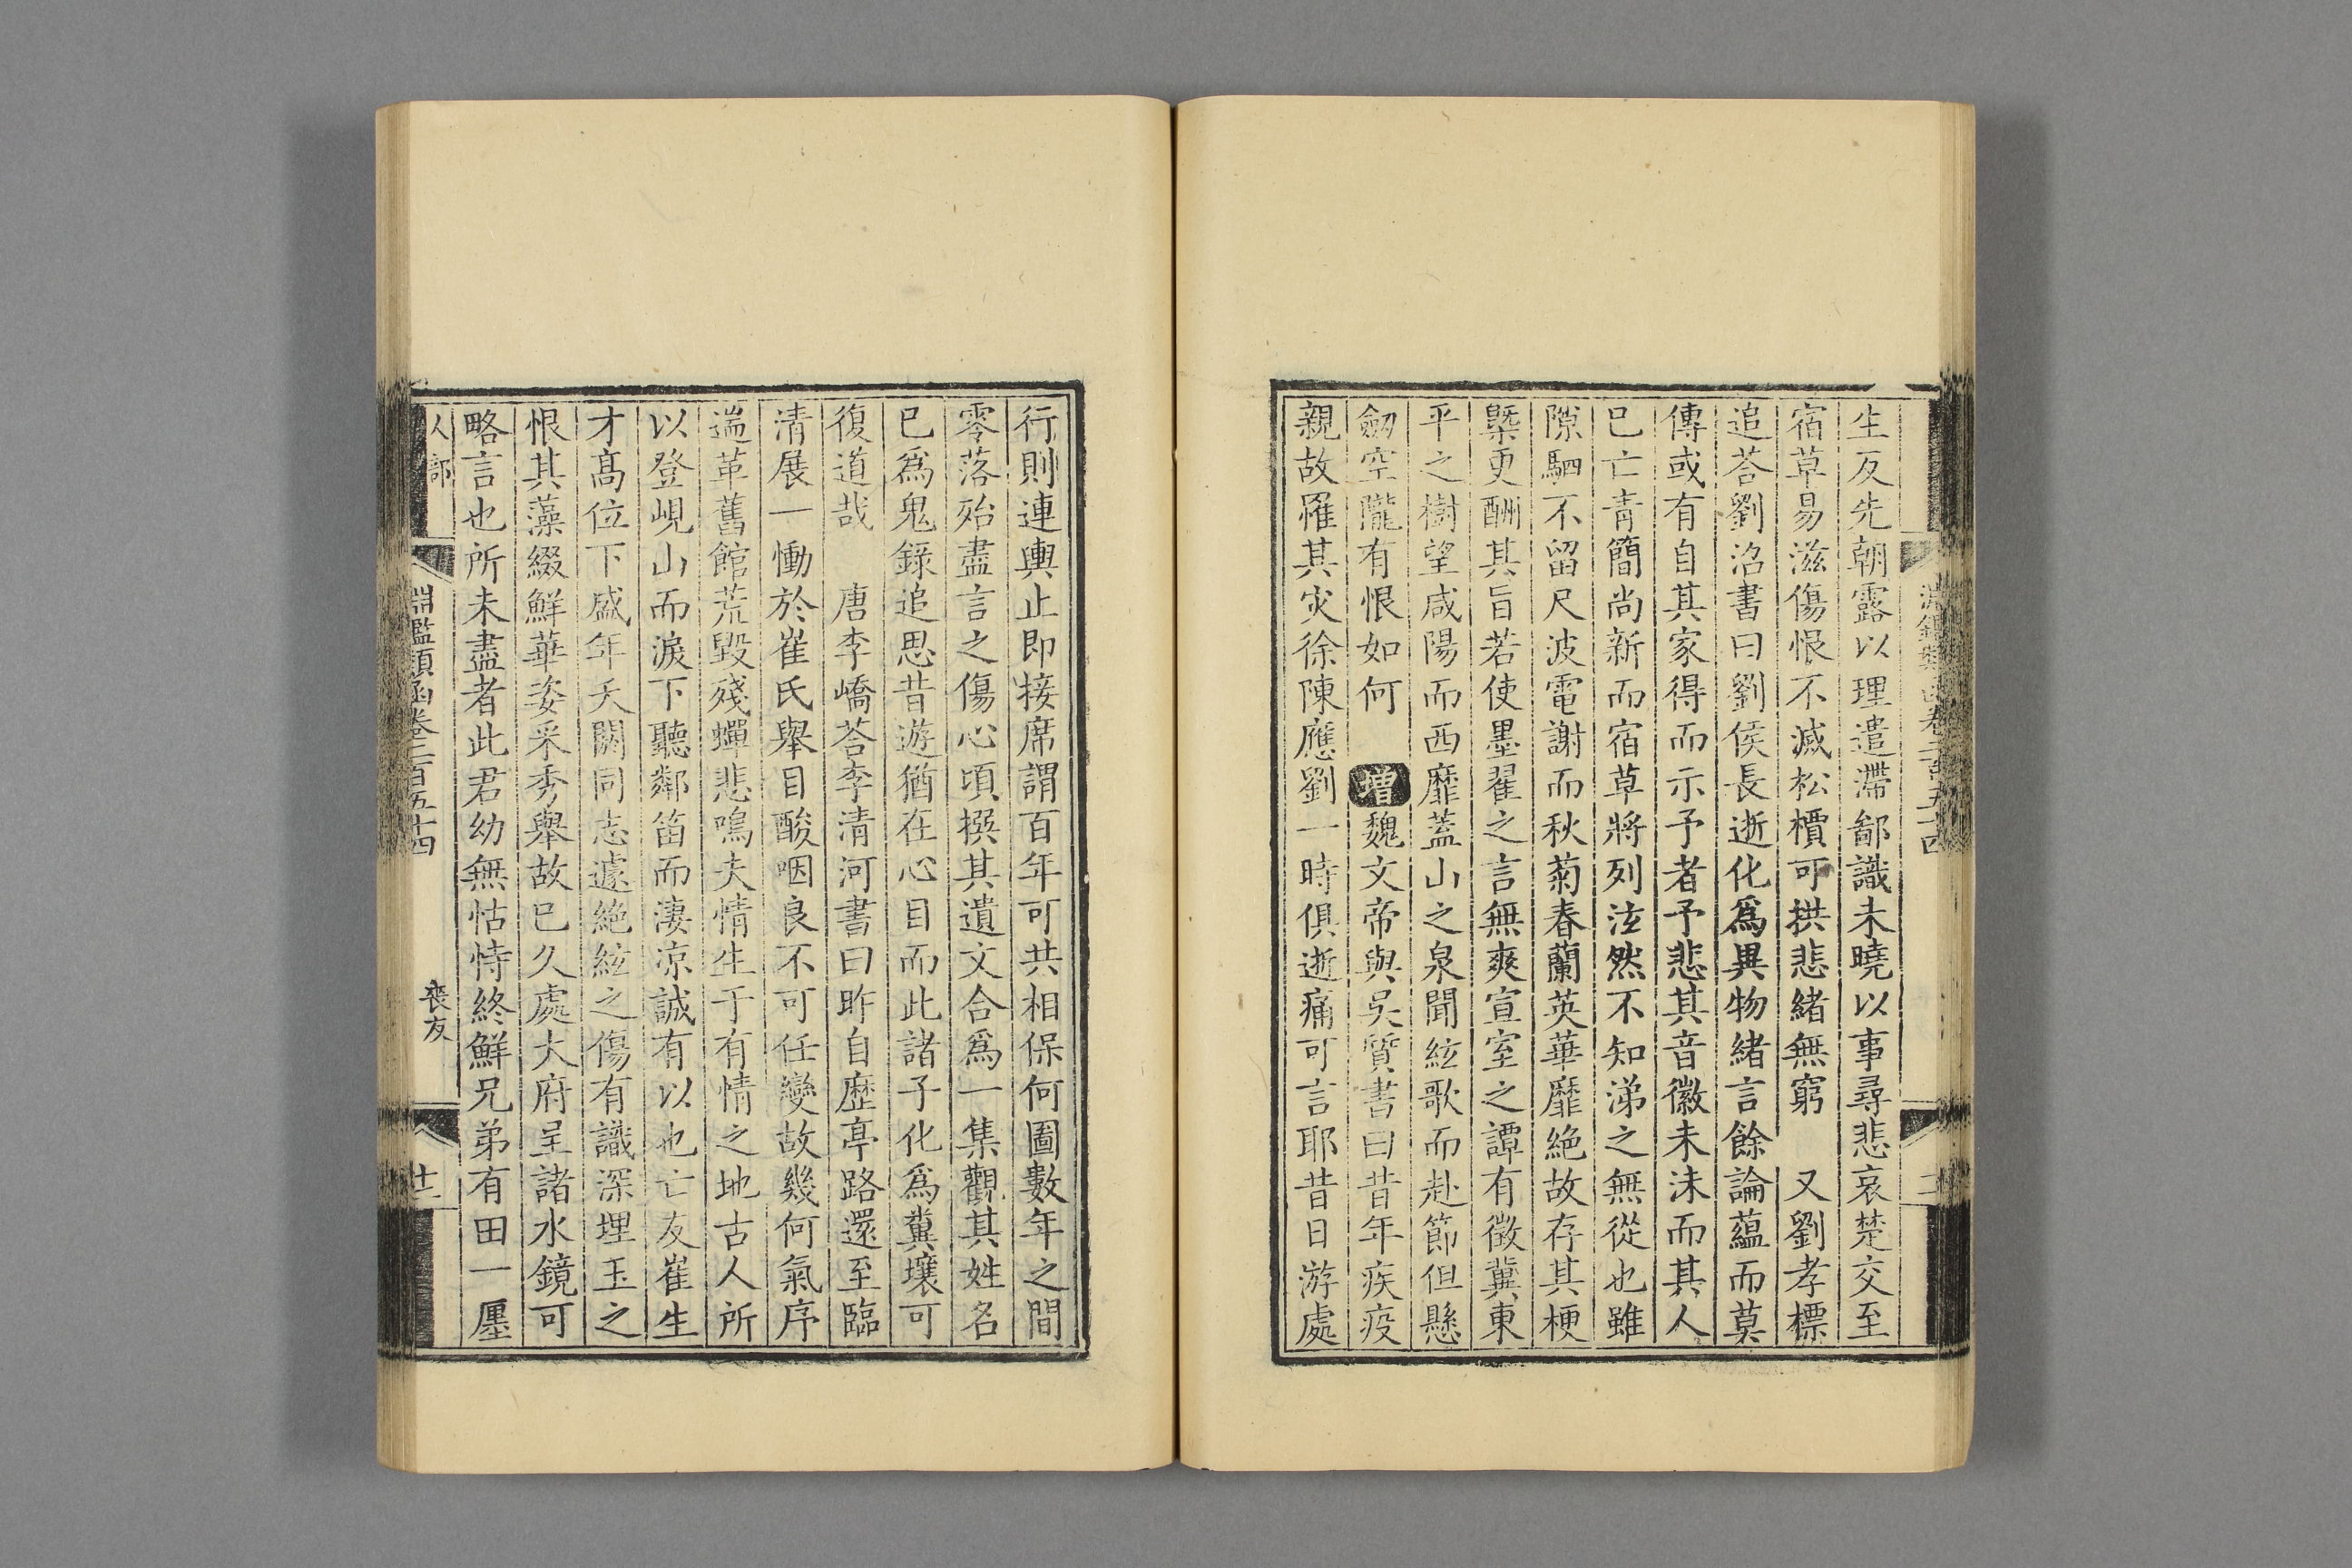 生反先朝露以理遣滯鄙識未曉以事尋悲哀楚交至
宿草易滋傷恨不滅松檟可拱悲緒無窮　又劉孝標
追荅劉沼書曰劉侯長逝化爲異物緒言餘論蘊而莫
傳或有自其家得而示予者予悲其音徽未沬而其人
已亡青簡尚新而宿草將列泫然不知涕之無從也雖
隙駟不留尺波電謝而秋菊春蘭英華靡絶故存其梗
槩更酬其旨若使墨翟之言無爽宣室之譚有徵冀東
平之樹望咸陽而西靡蓋山之泉聞絃歌而赴節但懸
劒空隴有恨如何　增魏文帝與吳質書曰昔年疾疫
親故罹其灾徐陳應劉一時俱逝痛可言耶昔日游處
行則連輿止即接席謂百年可共相保何圖數年之間
零落殆盡言之傷心頃撰其遺文合爲一集觀其姓名
已爲鬼錄追思昔遊猶在心目而此諸子化爲糞壤可
復道哉　唐李嶠荅李清河書曰昨自歷亭路還至臨
清展一慟於崔氏舉目酸咽良不可任變故幾何氣序
遄革舊館荒毀殘蟬悲鳴夫情生于有情之地古人所
以登峴山而淚下聽鄰笛而淒凉誠有以也亡友崔生
才高位下盛年夭閼同志遽絶絃之傷有識深埋玉之
恨其藻綴鮮華姿采秀舉故已久處大府呈諸水鏡可
略言也所未盡者此君幼無怙恃終鮮兄弟有田一㕓
人部
淵鑑類函卷二百五十四
喪友
十二